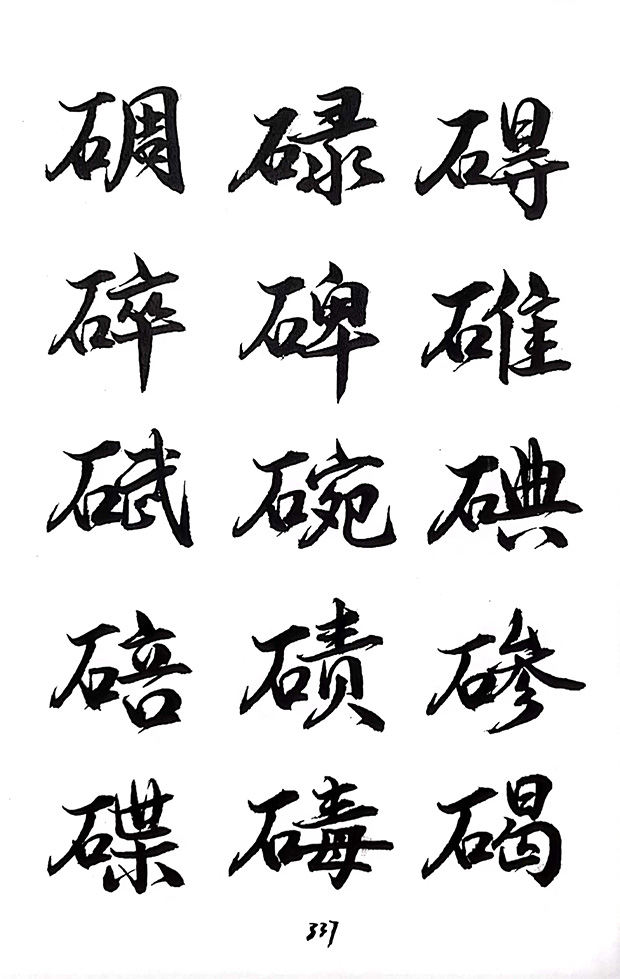 碉碌碍
碎碑碓
碔碗碘
碚碛碜
碟碡碣
337